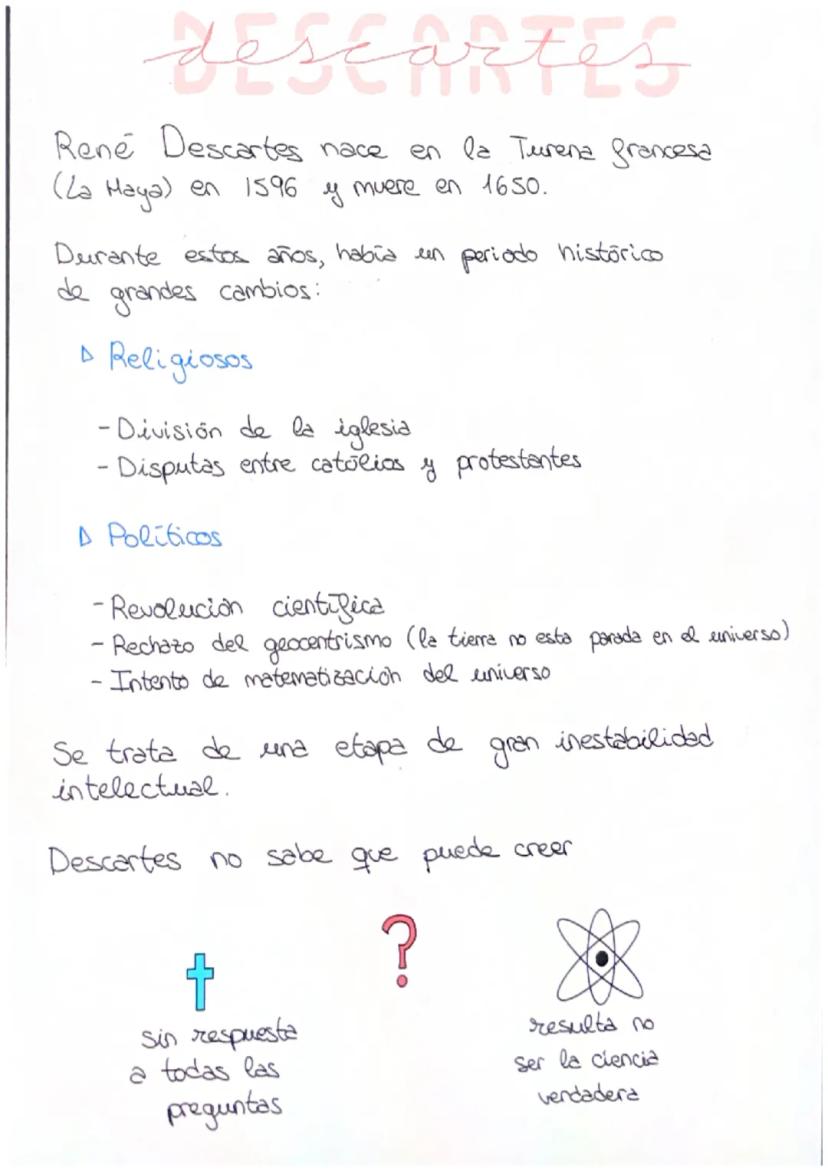 DESCARTES
descartes
René Descartes nace en la Turena francesa
(La Haya) en 1596 y muere en 1650.
Durante estos años, había un periodo histórico
de grandes cambios:
▷ Religiosos
- División de la iglesia
- Disputas entre católicos y protestantes
▷ Políticos
- Revolución científica
- Rechazo del geocentrismo (la tierra no esta parada en el universo)
- Intento de matematización del universo
Se trata de una etapa de gran inestabilidad
intelectual.
Descartes no sabe que puede creer
?
sin respuesta
a todas las
preguntas
resulta no
ser la ciencia
verdadera